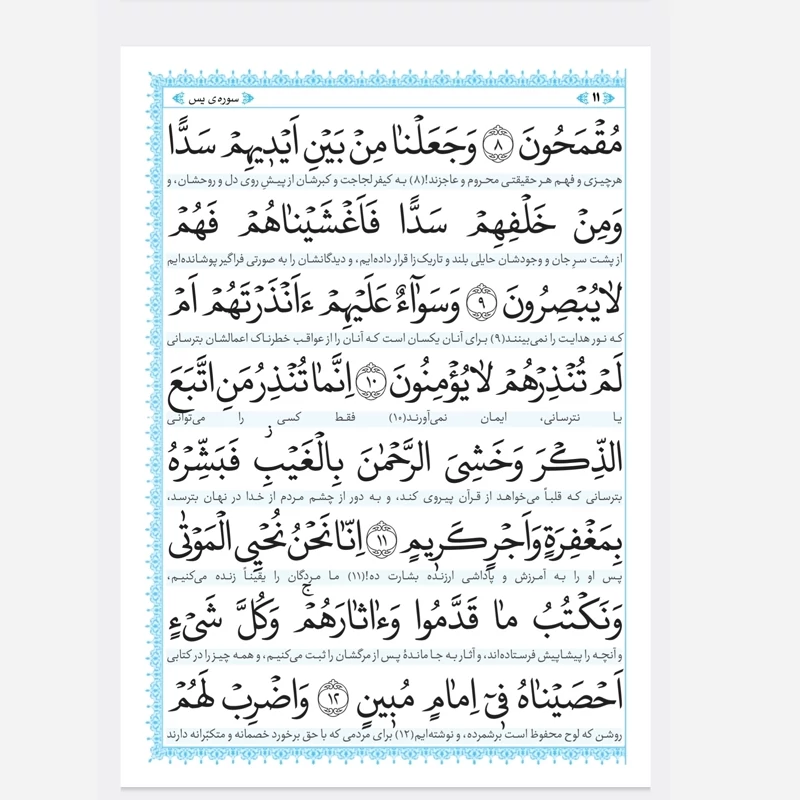 ۱۱ سوره‌ی یس
مُقْمَحُونَ ۝۸ وَجَعَلْنا مِنْ بَيْنِ اَيْديهِمْ سَدًّا
هرچیزی و فهم هر حقیقتی محروم و عاجزند!(۸) به کیفر لجاجت و کبرشان از پیشِ روی دل و روحشان، و
وَمِنْ خَلْفِهِمْ سَدًّا فَاَغْشَيْناهُمْ فَهُمْ
از پشت سرِ جان و وجودشان حایلی بلند و تاریک‌زا قرار داده‌ایم، و دیدگانشان را به صورتی فراگیر پوشانده‌ایم
لايُبْصِرُونَ ۝۹ وَسَوَآءٌ عَلَيْهِمْ ءَاَنْذَرْتَهُمْ اَمْ
که نور هدایت را نمی‌بینند(۹) برای آنان یکسان است که آنان را از عواقب خطرناک اعمالشان بترسانی
لَمْ تُنْذِرْهُمْ لايُؤْمِنُونَ ۝۱۰ اِنَّما تُنْذِرُ مَنِ اتَّبَعَ
یا نترسانی، ایمان نمی‌آورند(۱۰) فقط کسی را می‌توانی
الذِّكْرَ وَخَشِىَ الرَّحْمٰنَ بِالْغَيْبِ ز فَبَشِّرْهُ
بترسانی که قلباً می‌خواهد از قرآن پیروی کند، و به دور از چشم مردم از خدا در نهان بترسد،
بِمَغْفِرَةٍ وَاَجْرٍ كَريمٍ ۝۱۱ اِنّا نَحْنُ نُحْيِي الْمَوْتٰى
پس او را به آمرزش و پاداشی ارزنده بشارت ده!(۱۱) ما مردگان را یقیناً زنده می‌کنیم،
وَنَكْتُبُ ما قَدَّمُوا وَءاثارَهُمْ ج وَكُلَّ شَىْءٍ
و آنچه را پیشاپیش فرستاده‌اند، و آثار به جا ماندهٔ پس از مرگشان را ثبت می‌کنیم، و همه چیز را در کتابی
اَحْصَيْناهُ فيٓ اِمامٍ مُبينٍ ۝۱۲ وَاضْرِبْ لَهُمْ
روشن که لوح محفوظ است برشمرده، و نوشته‌ایم(۱۲) برای مردمی که با حق برخورد خصمانه و متکبّرانه دارند